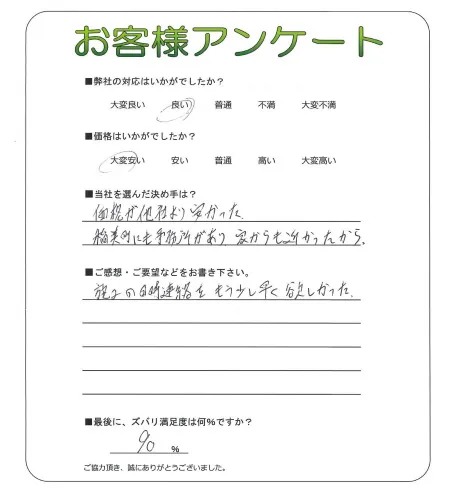 お客様アンケート
■弊社の対応はいかがでしたか？
大変良い 良い 普通 不満 大変不満
■価格はいかがでしたか？
大変安い 安い 普通 高い 大変高い
■当社を選んだ決め手は？
価格が他社より安かった
稲美町にも事務所があり 家からも近かったから.
■ご感想・ご要望などをお書き下さい。
施工の日時連絡を もう少し早く 欲しかった.
■最後に、ズバリ満足度は何%ですか？
90 %
ご協力頂き、誠にありがとうございました。